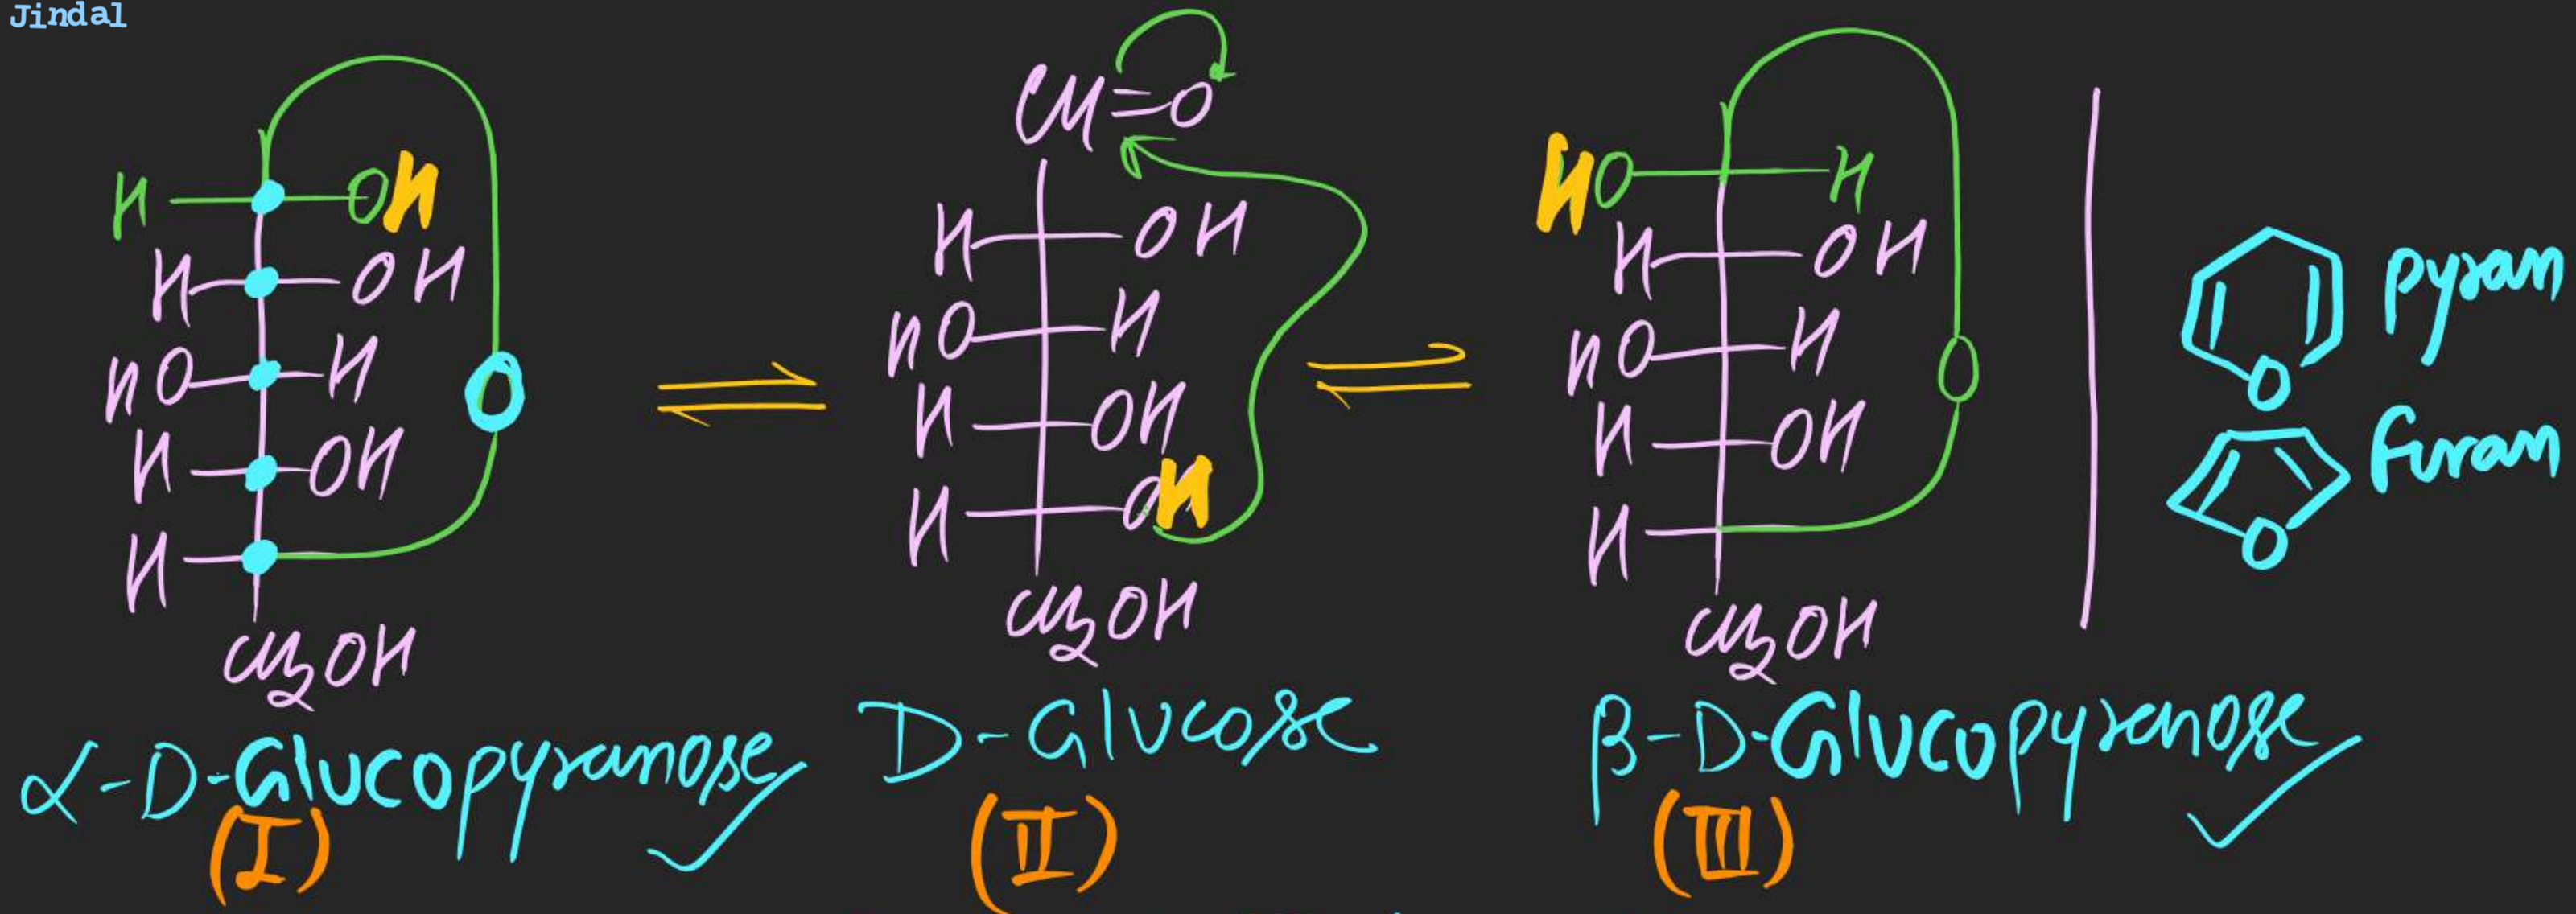 Jindal
H OH
H OH
HO H
H OH
H
CH2OH
O
α-D-Glucopyranose
(I)
CH=O
H OH
HO H
H OH
H OH
CH2OH
D-Glucose
(II)
HO H
H OH
HO H
H OH
H
CH2OH
O
β-D-Glucopyranose
(III)
O
pyran
O
furan